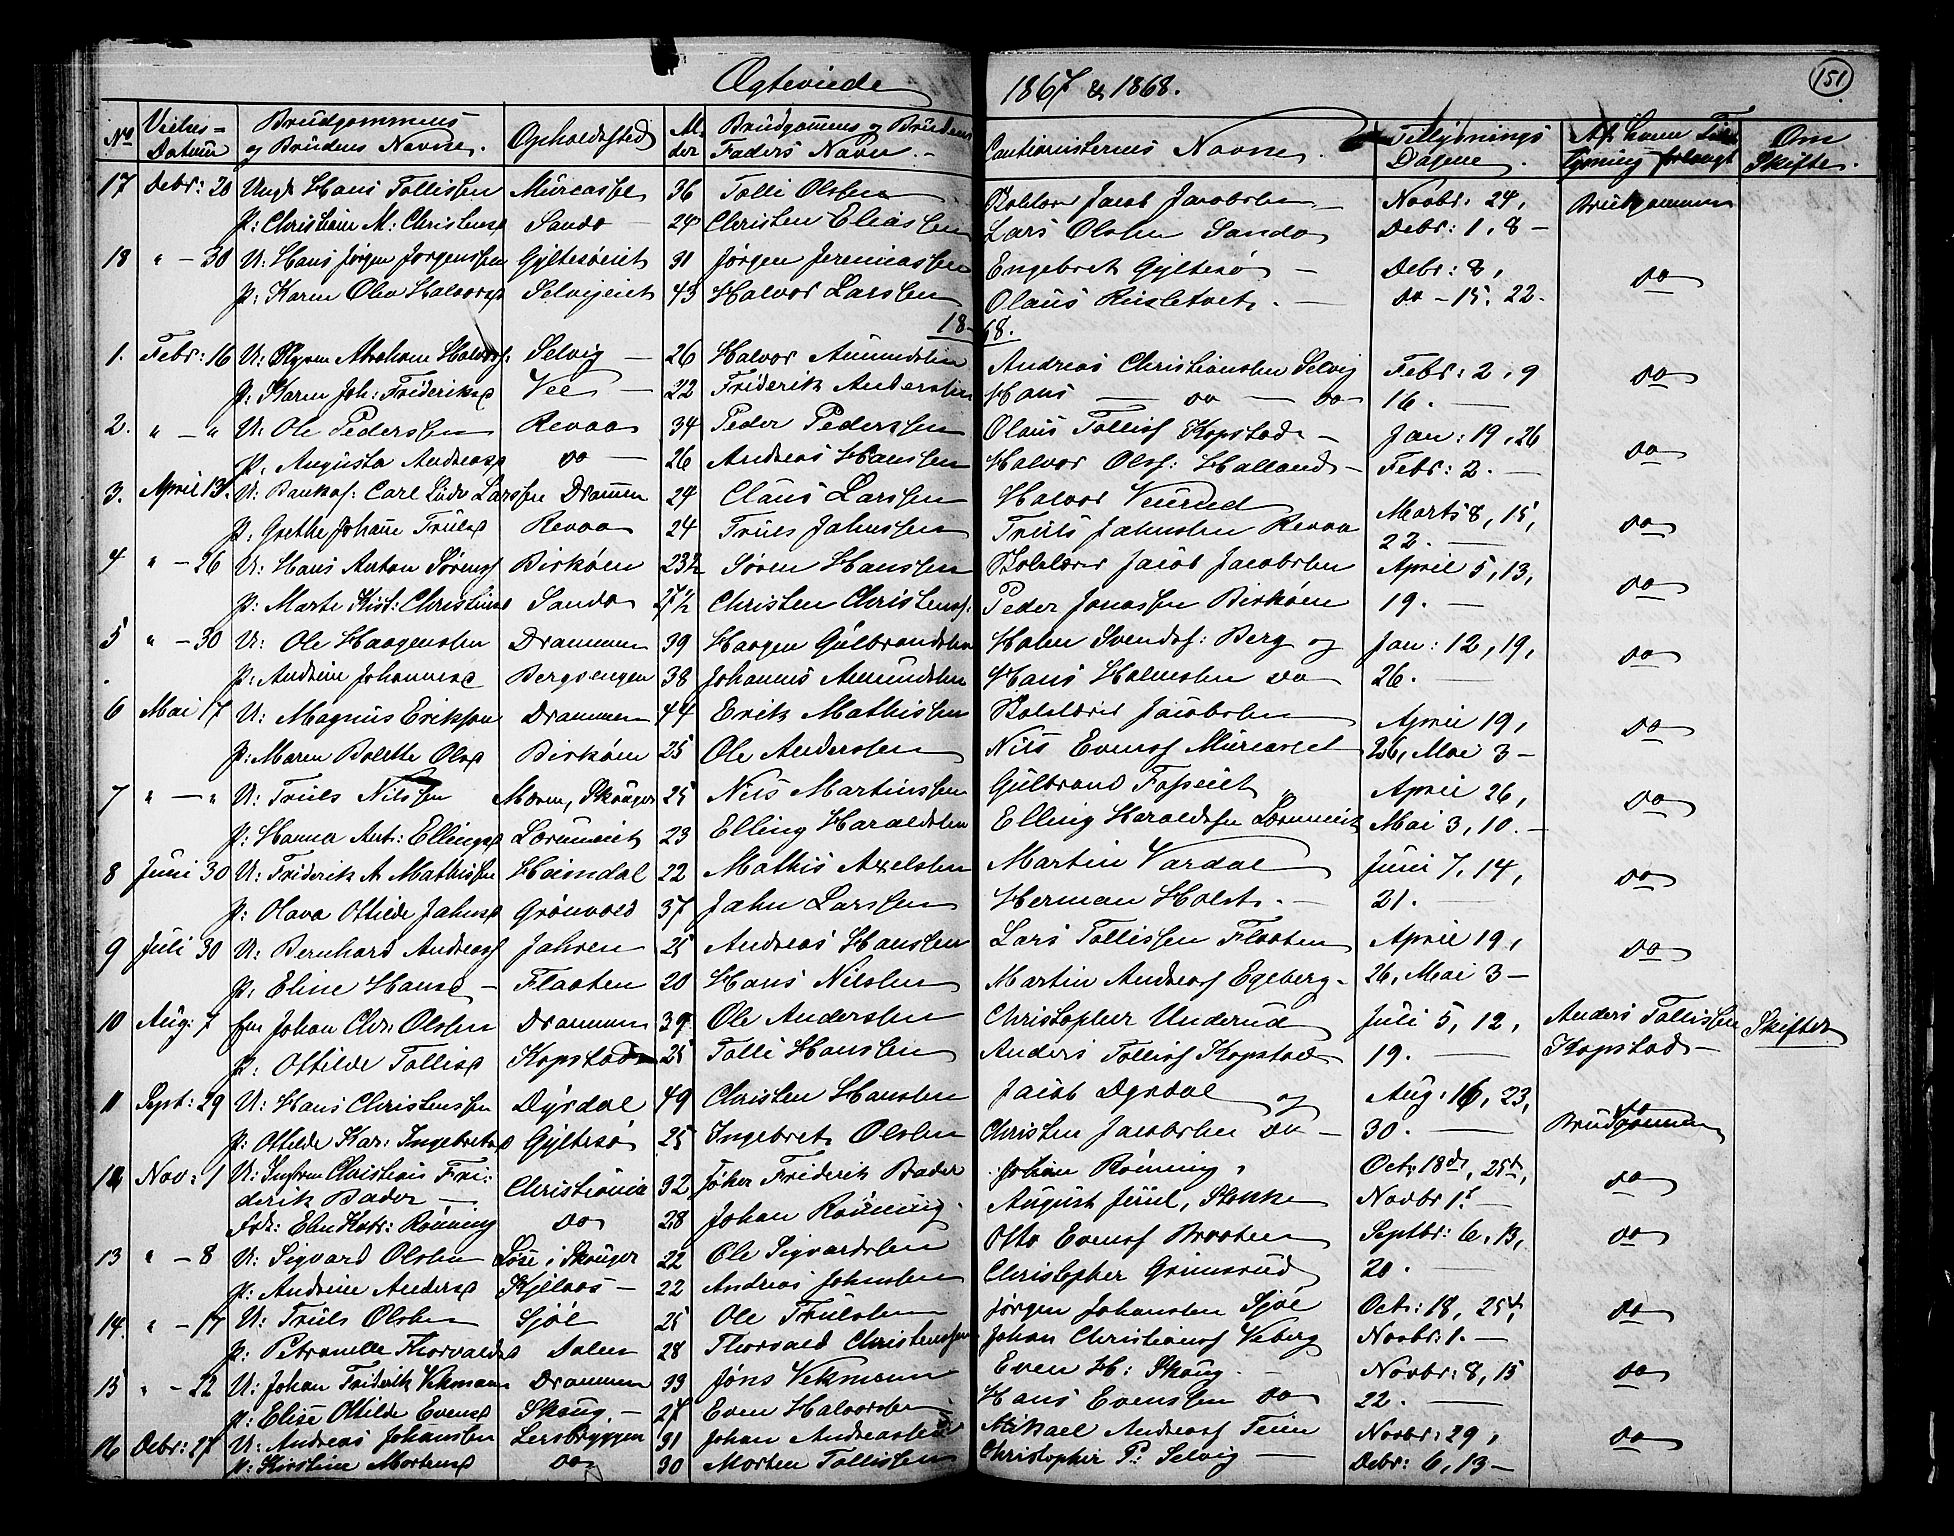 Ægteviede 1867 & 1868. 151
No Vielses= Datum Brudgommens og Brudens Navne. Opholdssted Al. der Brudgommens og Brudens Faders Navn. Cautionisternes Navne. Tillysnings Dagene. Af hvem Tillysning forlangt Om Skifte.
17 Debr: 20 Ungk Hans Tollissen 36 Tolli Olsen Jacob Jacobsen Novbr. 24, Brudgommen
P: Christiane M: Christensd Sando 24 Christen Eliassen Lars Olsen Sando Debr: 1, 8 –
18 " – 30 U: Hans Jørgen Jørgenssen Gyltesøeiet 31 Jørgen Jeremiassen Engebret Gyltesø – Debr: 8, do
P: Karen Olea Halvorsd Selvigeiet 43 Halvor Larssen Olaus do – 15. 22.
1868.
1. Febr: 16 U: Abraham Halvors: Selvig – 26 Halvor Amundsen Andreas Christiansen Selvig Febr: 2, 9 do
P: Karen Joh: Frideriksd Vee – 22 Friderik Anderssen Hans — do — do 16. —
2. " – " U: Ole Pederssen Revaa 34 Peder Pederssen Olaus Tolliss Kopstad – Jan: 19, 26 do
P. Augusta Andreasd do — 26 Andreas Hanssen Halvor Olss: Halland – Febr: 2. —
3. April 13. U: Carl Ludv Larssen Drammen 24 Claus Larssen Halvor Marts 8, 15, do
P. Grethe Johane Trulsd Revaa 24 Truls Jahnssen Truls Jahnssen Revaa 22. —
4 " – 26 U: Hans Anton Sørenss Birkøen 23½ Søren Hanssen Jacob Jacobsen April 5, 13, do
P. Marte Kist: Christensd Sando 27½ Christen Christenss. Peder Jonassen Birkøen 19. —
5 " – 30 U: Ole Haagenssen Drammen 39 Haagen Gulbrandsen Svends: Berg og Jan: 12, 19, do
P. Andrine Johannesd Bergsengen 38 Johannes Amundsen Hans Holmsen do 26. —
6 Mai 17 U: Magnus Erikson Drammen 44 Erik Mathissen Jacobsen April 19, do
P: Maren Bolette Olsd Birkøen 25 Ole Anderssen Nils Evenss 26, Mai 3 –
7 " – " U: Truls Nilssen Moren, Skouger 25 Nils Martinssen Gulbrand Fosseiet April 26, do
P: Hanna Ant: Ellingsd Lerumeiet 23 Elling Haraldsen Elling Haraldssen Lerumeiet Mai 3, 10. –
8 Juni 30 U: Friderik A Mathissen Heimdal 22 Mathis Axelsen Martin Vardal Juni 7, 14, do
P: Olava Ottilde Jahnsd Grønvold 37 Jahn Larssen Herman Holst. – 21. —
9 Juli 30 U: Bernhard Andreass Jahren 25 Andreas Hanssen Lars Tollissen Flaaten April 19, do
P. Eline Hansd – Flaaten 20 Hans Nilssen Martin Andreass Egeberg – 26, Mai 3 –
10 Aug: 7 Em Johan Chr: Olssen Drammen 39 Ole Anderssen Christopher Underud Juli 5, 12, Anders Tollissen Skifter
P: Ottilde Tollisd Kopstad 25 Tolli Hanssen Anders Tolliss Kopstad 19. — Kopstad –
11 Sept: 29 U: Hans Christenssen Dyrdal 49 Christen Hanssen Jacob Dyrdal og Aug: 16, 23, Brudgommen
P: Ottilde Kar: Ingebretsd Gyltesø 25 Ingebret Olsen Christen Jacobsen do – 30. —
12 Nov: 1 U: Christians Fri: derik Bader – Christiania 32 Friderik Bader Johan Rønning, Oct. 18de, 25de, do
Elen Kat: Rønning do 28 Johan Rønning August Juul, Novbr 1ste
13 " – 8 U: Sigvard Olssen i Skouger 22 Ole Sigvardsen Otto Evenss Braaten Septbr: 6, 13, do
P: Andrine Andersd Kjelaas – 22 Andreas Johnssen Christopher Grimsrud 20. —
14. " – 17 U: Truls Olssen Sjøl 25 Ole Trulssen Jørgen Johanssen Sjøl Oct: 18, 25de, do
P: Petronelle Thorvaldsd Dalen 28 Thorvald Christenssen Johan Christianss Veberg Novbr: 1. —
15 " – 22 U: Johan Fridrik Vekmann Drammen 33 Jøns Vekmann Even H: Skoug. – Novbr: 8, 15 do
P: Elise Ottilde Evensd Skoug. – 27 Even Halvorsen Hans Evenssen do 22. —
16 Debr: 27 U: Andreas Johanssen Lersbryggen 31 Johan Andreassen Mikael Andreass Teien Novbr: 29, do
P: Kirstine Mortensd do 30 Morten Tollissen Christopher P: Selvig — Debr: 6, 13 –